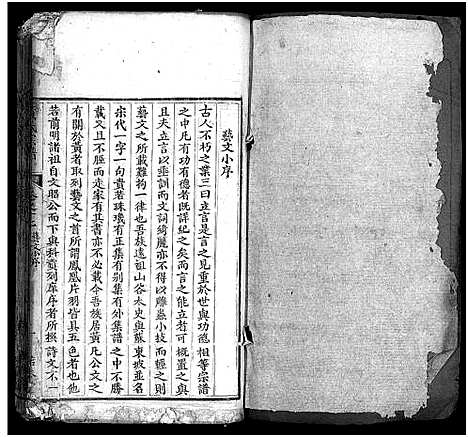 藝文小序
古人不朽之業三曰立言是言之見重於世與功德相等宗譜
之中凡有功有德者既詳紀之矣而言之能立者可概置之與
且夫立言以垂訓而文詞綺麗亦不得以雕蟲小技而輕之則
藝文之所載難拘一律也吾族遠祖山谷太史與蘇東坡並名
宋代一字一句貴若珠璣有正集有别集有外集譜之中不勝
載又且不脛而走家有其書亦不必載今吾族居黃凡公文之
有關於黃者取列藝文之首所謂鳳凰片羽皆具五色者也他
若前明諸祖自文縣公而下與科貢列庠序者所撰詩文不一